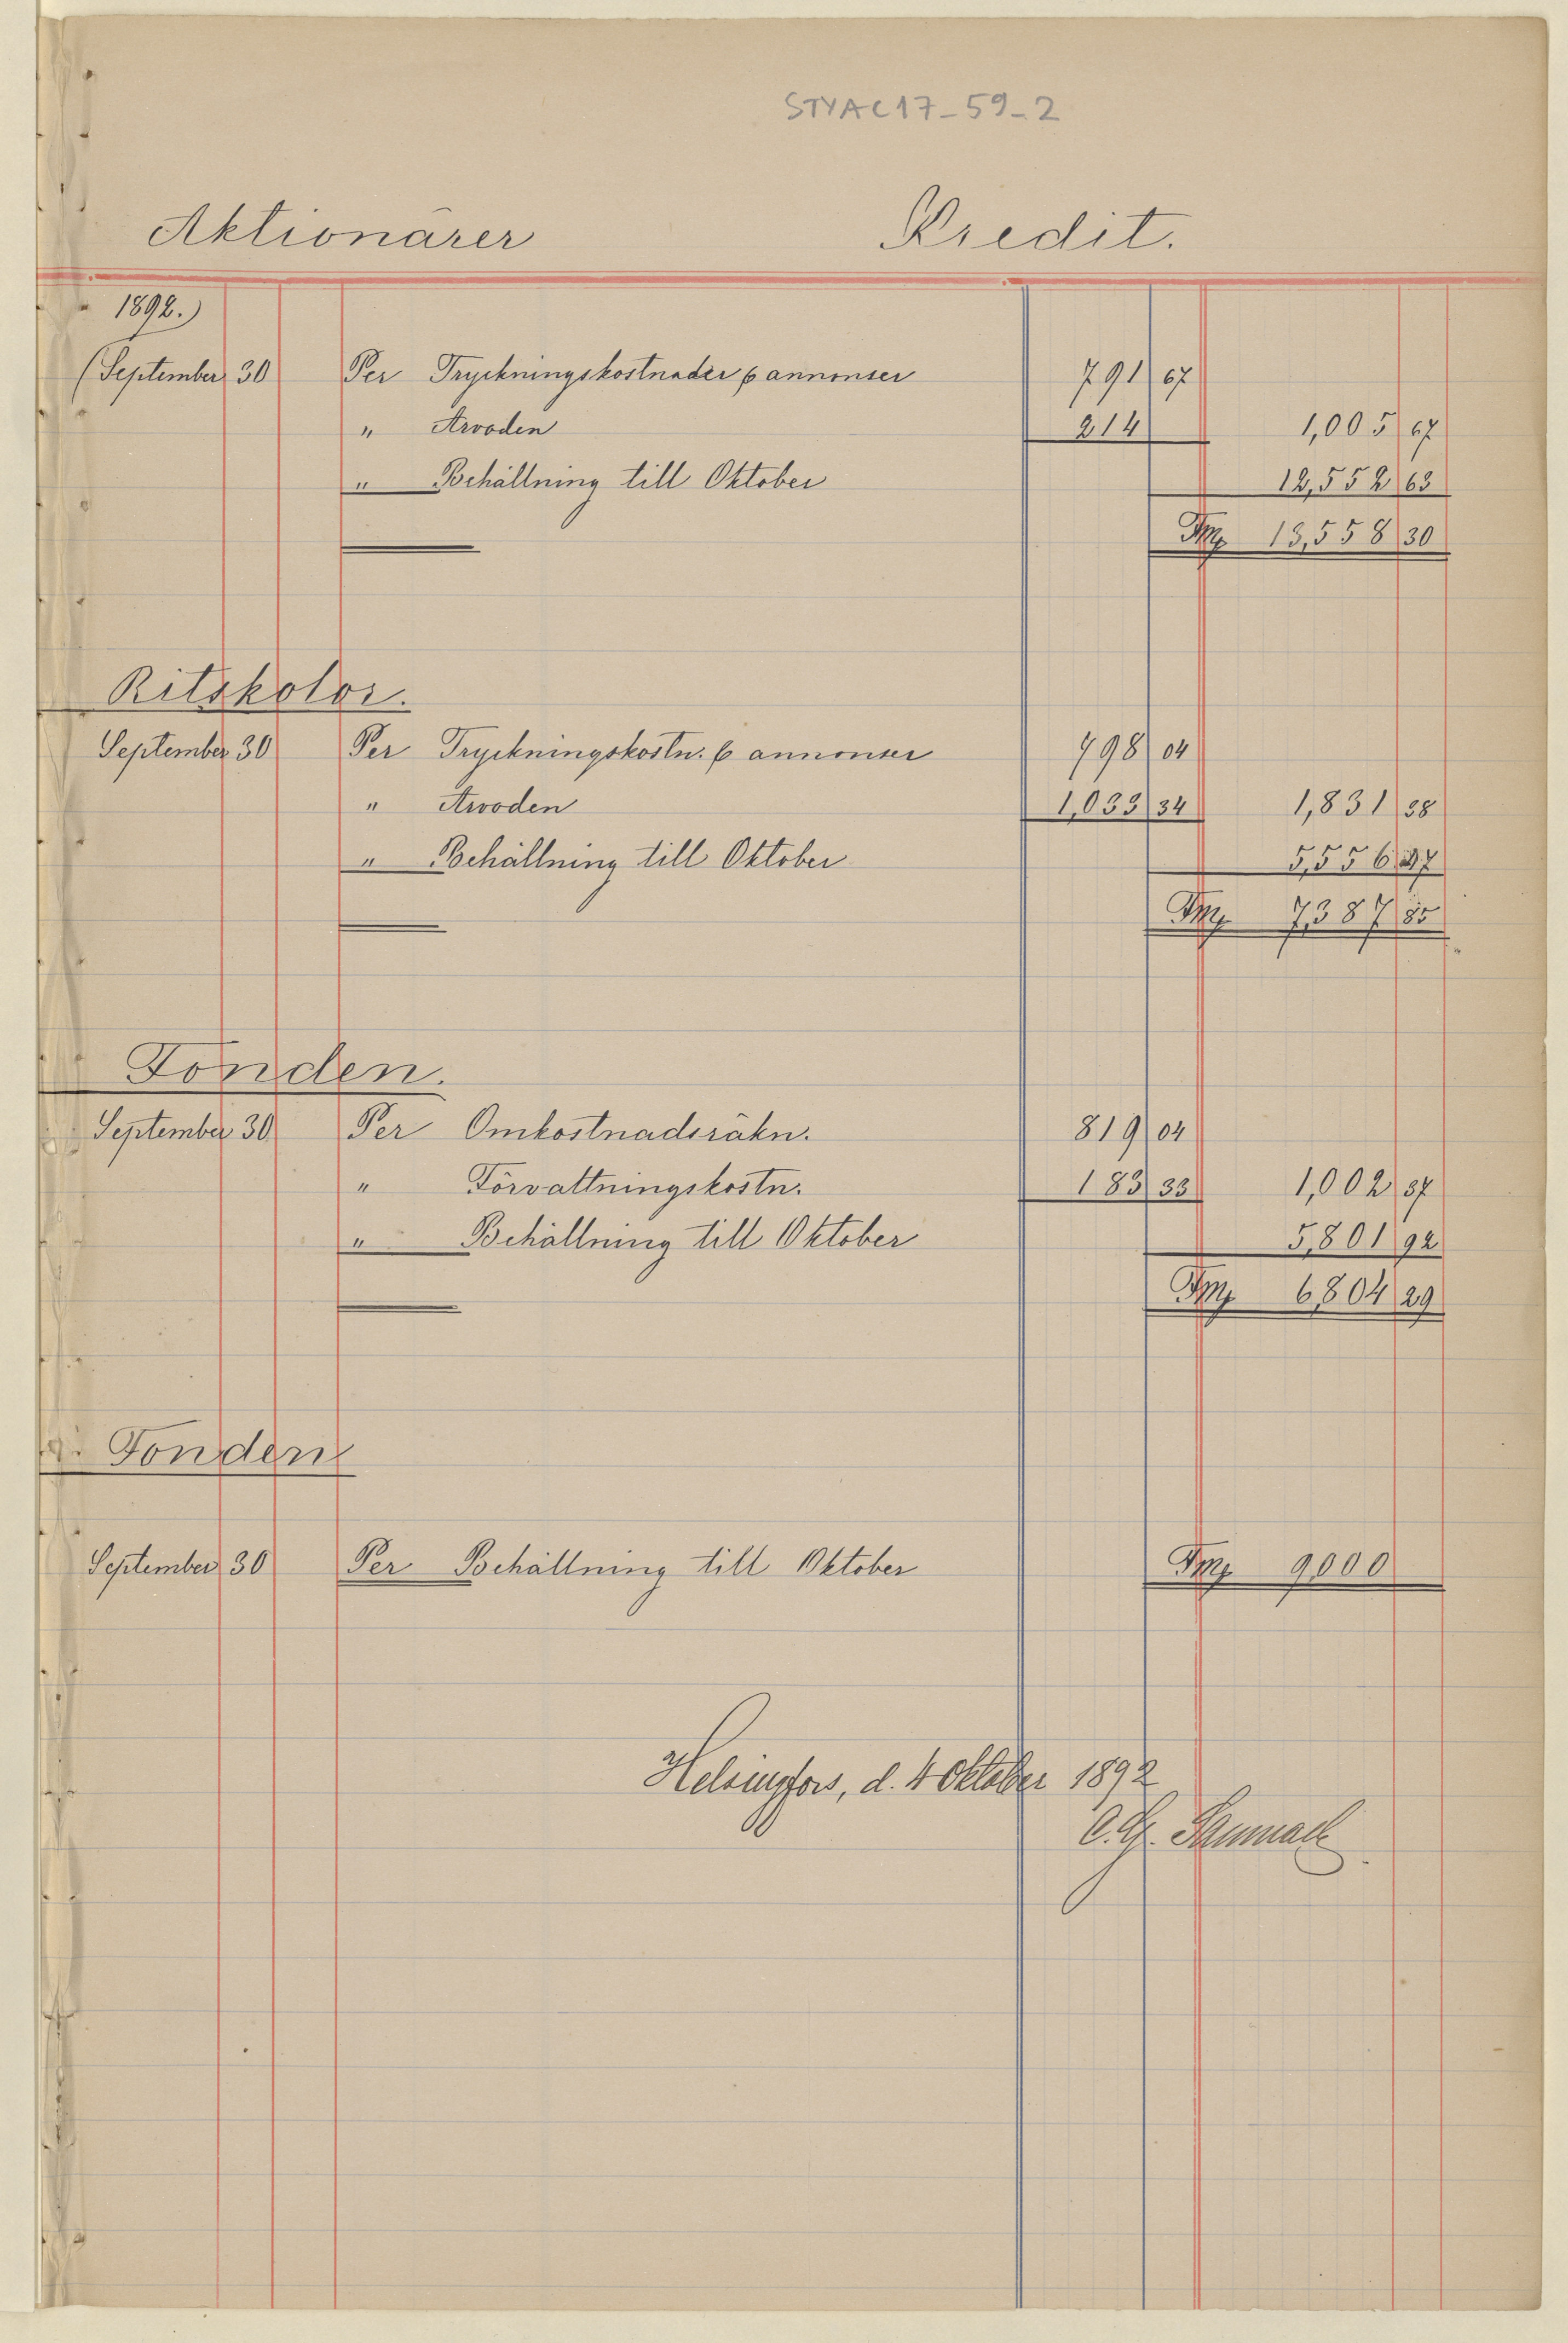 STYAC17-59-2
Aktionärer Kredit.
1892.)
(September 30 Per Tryckningskostnader & annonser 791 67
" Arvoden 214 1,005 67
" Behållning till Oktober 12,552 63
Fmk 13,558 30
Ritskolor.
September 30 Per Tryckningskostn. & annonser 798 04
" Arvoden 1,033 34 1,831 38
" Behållning till Oktober 5,556 47
Fmk 7,387 85
Fonden.
September 30 Per Omkostnadsräkn. 819 04
" Förvaltningskostn. 183 33 1,002 37
" Behållning till Oktober 5,801 92
Fmk 6,804 29
Fonden
September 30 Per Behållning till Oktober Fmk 9,000
Helsingfors, d. 4 Oktober 1892
C. G.